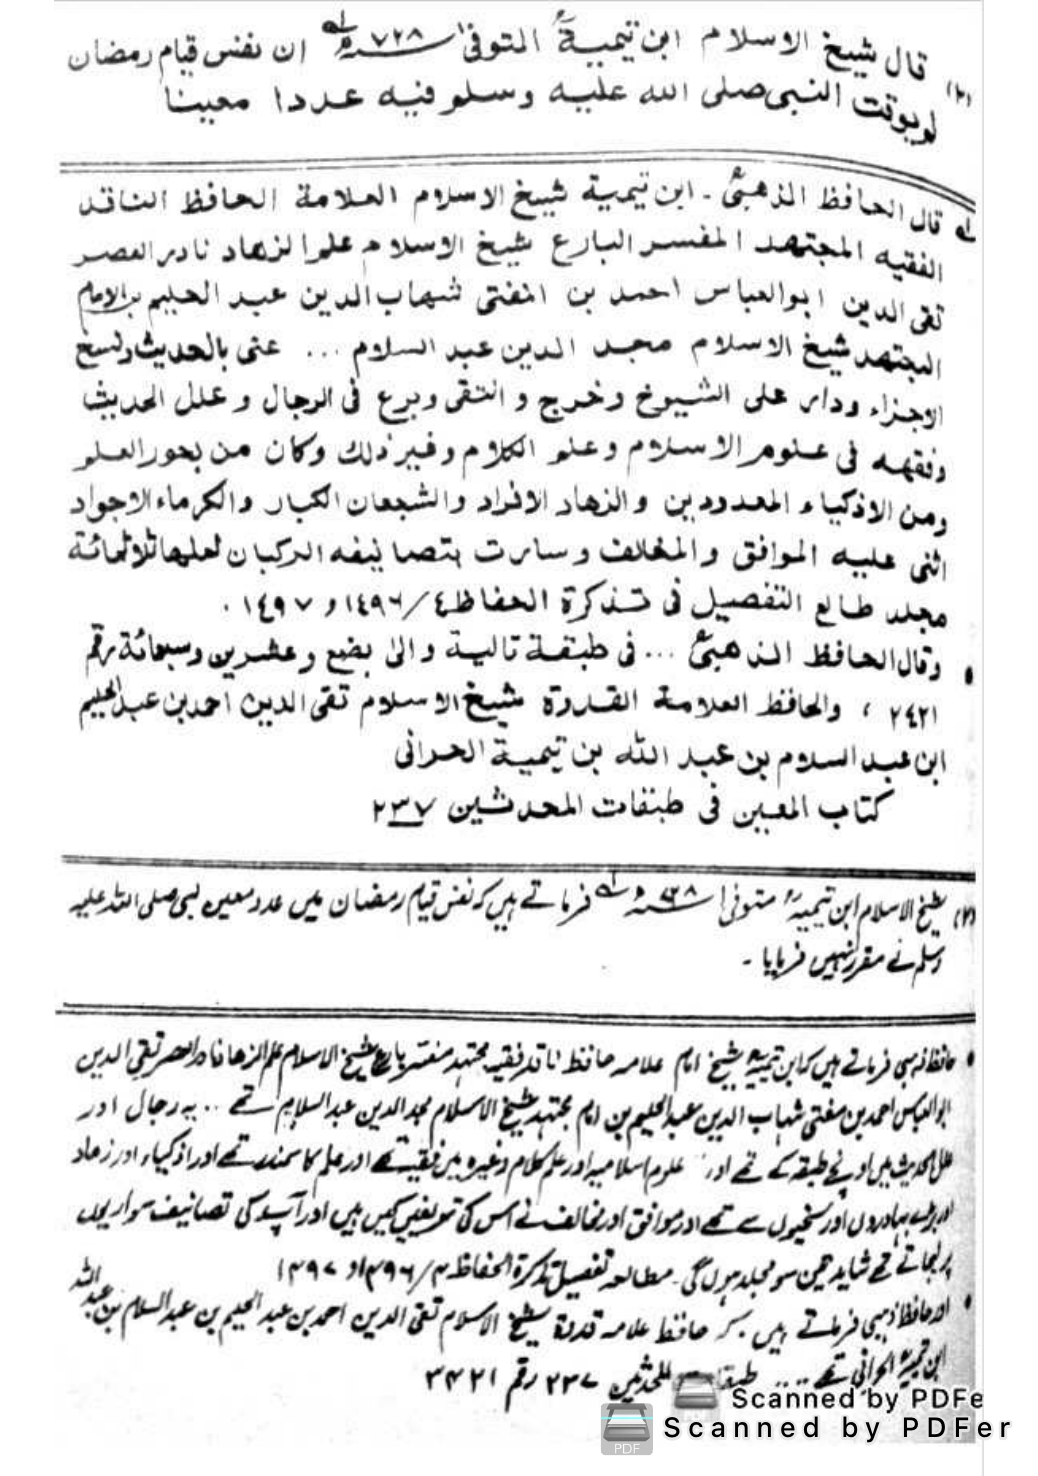 (٢) قال شيخ الاسلام ابن تيمية المتوفى ٧٢٨ھ ان نفس قيام رمضان
لم يوقت النبی صلی الله عليه وسلم فيه عددا معينا
قال الحافظ الذهبیؒ - ابن تيمية شيخ الاسلام العلامة الحافظ الناقد
الفقيه المجتهد المفسر البارع شيخ الاسلام علم الزهاد نادر العصر
تقی الدين ابوالعباس احمد بن المفتی شهاب الدين عبد الحليم بن الامام
المجتهد شيخ الاسلام مجد الدين عبد السلام ... عنی بالحديث ونسخ
الاجزاء ودار علی الشيوخ وخرج وانتقی وبرع فی الرجال وعلل الحديث
وفقهه فی علوم الاسلام وعلم الكلام وغير ذلك وكان من بحور العلم
ومن الاذكياء المعدودين والزهاد الافراد والشجعان الكبار والكرماء الاجواد
اثنی عليه الموافق والمخالف وسارت بتصانيفه الركبان لعلها ثلاثمائة
مجلد طالع التفصيل فی تذكرة الحفاظ ٤/١٤٩٦ و ١٤٩٧ .
• وقال الحافظ الذهبیؒ ... فی طبقة تالية والی بضع وعشرين وسبعمائة رقم
٢٤٢١ ، والحافظ العلامة القدوة شيخ الاسلام تقی الدين احمد بن عبد الحليم
ابن عبد السلام بن عبد الله بن تيمية الحرانی
كتاب المعين فی طبقات المحدثين ٢٣٧
(٢) شیخ الاسلام ابن تیمیہؒ متوفی ٧٢٨ھ فرماتے ہیں کہ نفس قیام رمضان میں عدد معین نبی صلی اللہ علیہ
وسلم نے مقرر نہیں فرمایا -
• حافظ ذہبی فرماتے ہیں کہ ابن تیمیہؒ شیخ امام علامہ حافظ ناقد فقیہ مجتہد مفسر بارع شیخ الاسلام علم الزہاد نادر العصر تقی الدین
ابوالعباس احمد بن مفتی شہاب الدین عبدالحلیم بن امام مجتہد شیخ الاسلام مجد الدین عبدالسلام تھے ... یہ رجال اور
علل الحدیث میں اونچے طبقہ کے تھے اور علوم اسلامیہ اور علم کلام وغیرہ میں فقیہ تھے اور علم کا سمندر تھے اور اذکیاء اور زہاد
اور بڑے بہادروں اور سخیوں سے تھے اور موافق اور مخالف نے اس کی تعریفیں کیں ہیں اور آپ کی تصانیف سواریوں
پر لیجاتے تھے شاید تین سو مجلد ہوں گی - مطالعہ تفصیل تذکرۃ الحفاظ ٤/١٤٩٦ و ١٤٩٧
• اور حافظ ذہبی فرماتے ہیں حافظ علامہ قدوۃ شیخ الاسلام تقی الدین احمد بن عبد الحلیم بن عبد السلام بن عبد اللہ
ابن تیمیہؒ الحرانی تھے .... المحدثین ٢٣٧ رقم ٢٤٢١
Scanned by PDFe
Scanned by PDFer
PDF